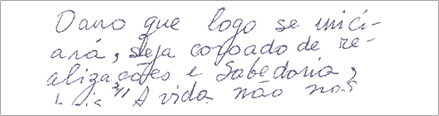 O ano que logo se inici-
ará, seja coroado de re-
alizações e Sabedoria,
A vida não nos